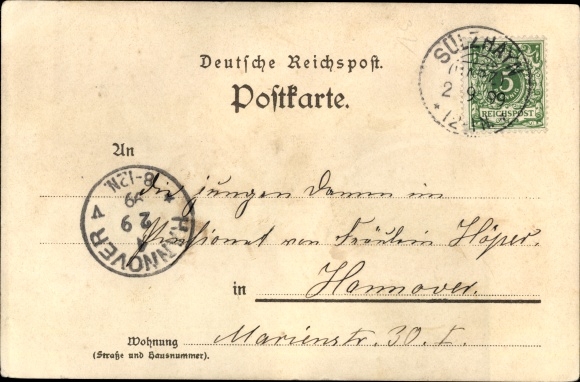 SÜLZHAYN
2 9.99
* 12-1N. *
5
REICHSPOST
Deutsche Reichspost.
Postkarte.
An
die jungen Damen im
Pensionat von Fräulein Höper.
in Hannover.
Wohnung Marienstr. 30. I.
(Straße und Hausnummer).
HANNOVER
2 9
99
8-12N.